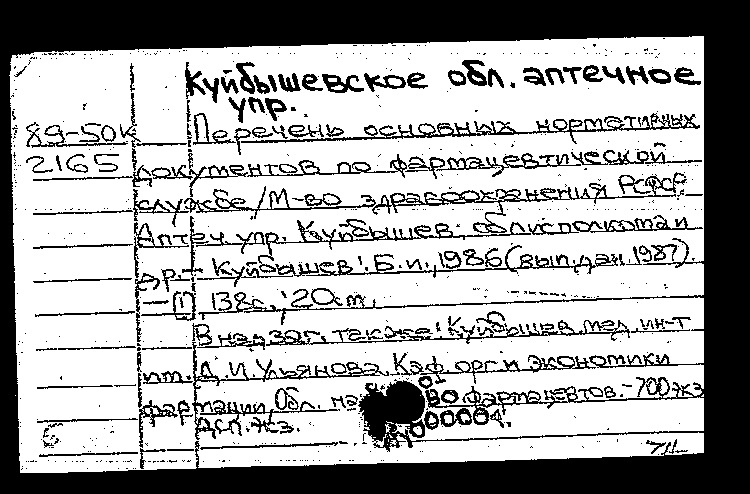 Куйбышевское обл. аптечное
упр.
89-50К Перечень основных нормативных
2165 документов по фармацевтической
службе/М-во здравоохранения РСФСР
Аптеч. упр. Куйбышев. облисполкома и
др.- Куйбышев: Б.и., 1986 (вып.дан.1987).
-[1], 138с.; 20см.
В надзаг. также: Куйбышев. мед. ин-т
им. Д.И.Ульянова. Каф. орг. и экономики
фармации, Обл. на во фармацевтов.-700экз
ДСП.экз. 000004.
6